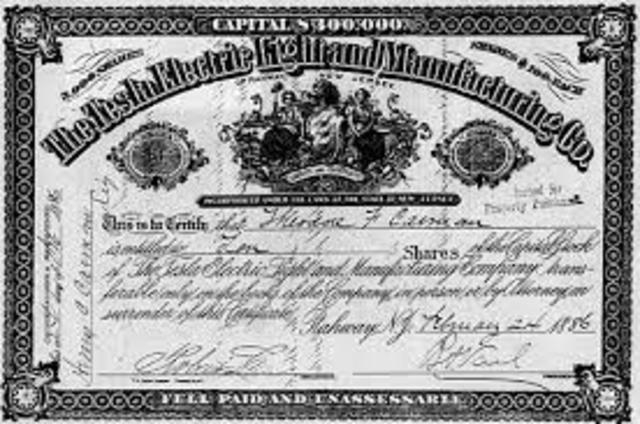 CAPITAL $300.000.
The Tesla Electric Light and Manufacturing Co.
RAHWAY, NEW JERSEY.
INCORPORATED UNDER THE LAWS OF THE STATE OF NEW JERSEY
Issued for
Property Purchased
This is to Certify that Theodore F
is entitled to Ten Shares of the Capital Stock
of The Tesla Electric Light and Manufacturing Company, trans-
ferable only on the books of the Company, in person or by Attorney, on
surrender of this Certificate.
Rahway N.J. February 24 1886
FULL PAID AND UNASSESSABLE